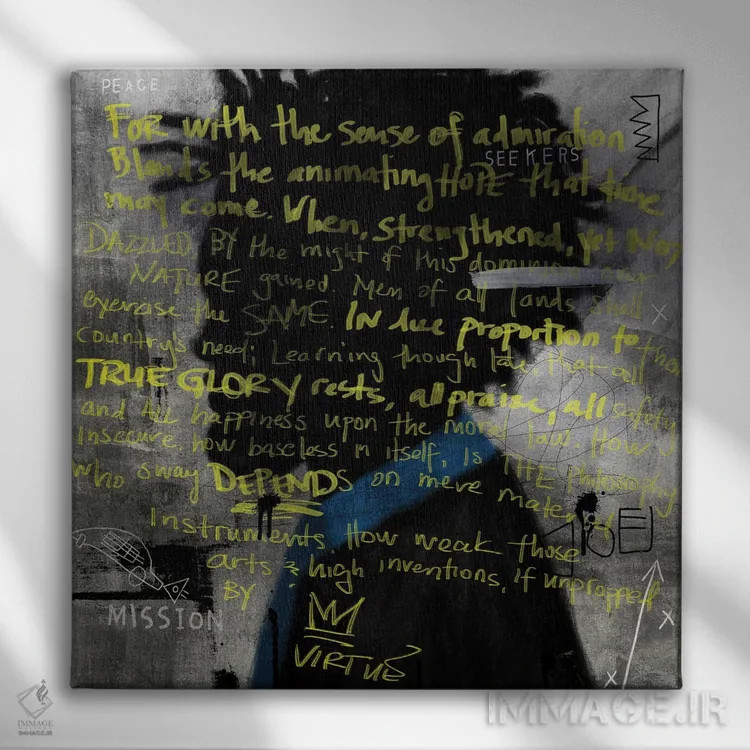 PEACE
FOR with the sense of admiration
SEEKERS
Blends the animating HOPE that time
may come. When, strengthened, yet not
DAZZLED BY the might of this dominion
NATURE gained. Men of all lands shall
exercise the SAME. IN due proportion to their
Country's need; Learning though late that all
TRUE GLORY rests, all praise, all safety
and all happiness upon the moral law. How
Insecure, how baseless in itself, Is THE Philosophy
who sway DEPENDS on mere material
Instruments. How weak those
arts & high inventions, if unpropped
BY
VIRTUE
MISSION
IMMAGE
IMMAGE.IR
IMMAGE.IR